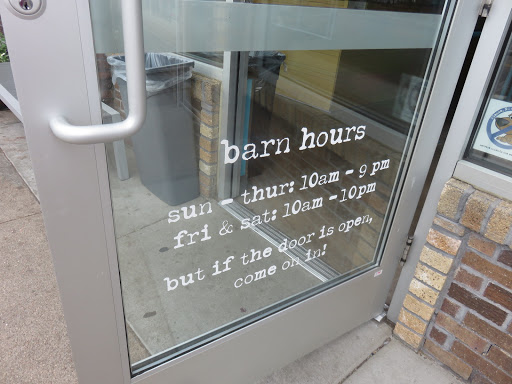 barn hours
sun - thur: 10am - 9 pm
fri & sat: 10am - 10pm
but if the door is open,
come on in!